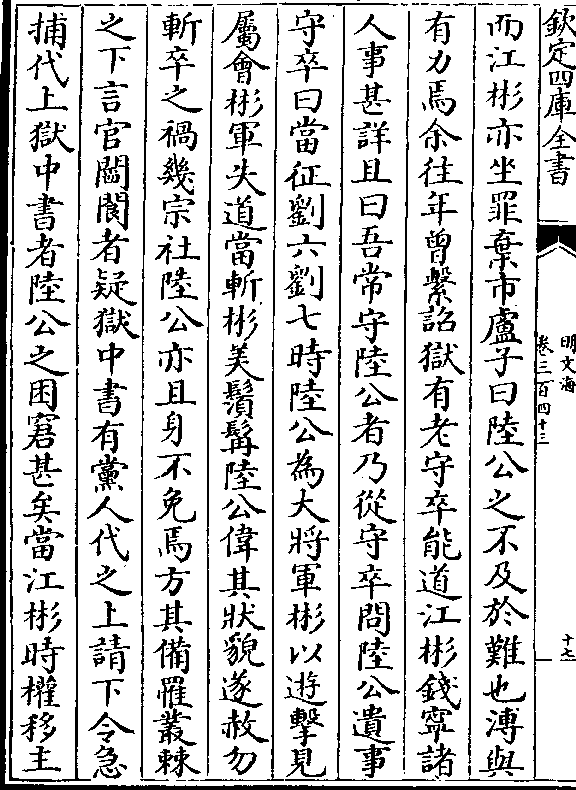 欽定四庫全書
明文海
卷三百四十三
十七
而江彬亦坐罪棄市盧子曰陸公之不及於難也溥與
有力焉余往年曾繫詔獄有老守卒能道江彬錢寧諸
人事甚詳且曰吾常守陸公者乃從守卒問陸公遺事
守卒曰當征劉六劉七時陸公為大將軍彬以遊擊見
屬會彬軍失道當斬彬美鬚髯陸公偉其狀貌遂赦勿
斬卒之禍幾宗社陸公亦且身不免焉方其備罹叢棘
之下言官闒閬者疑獄中書有黨人代之上請下令急
捕代上獄中書者陸公之困窘甚矣當江彬時權移主